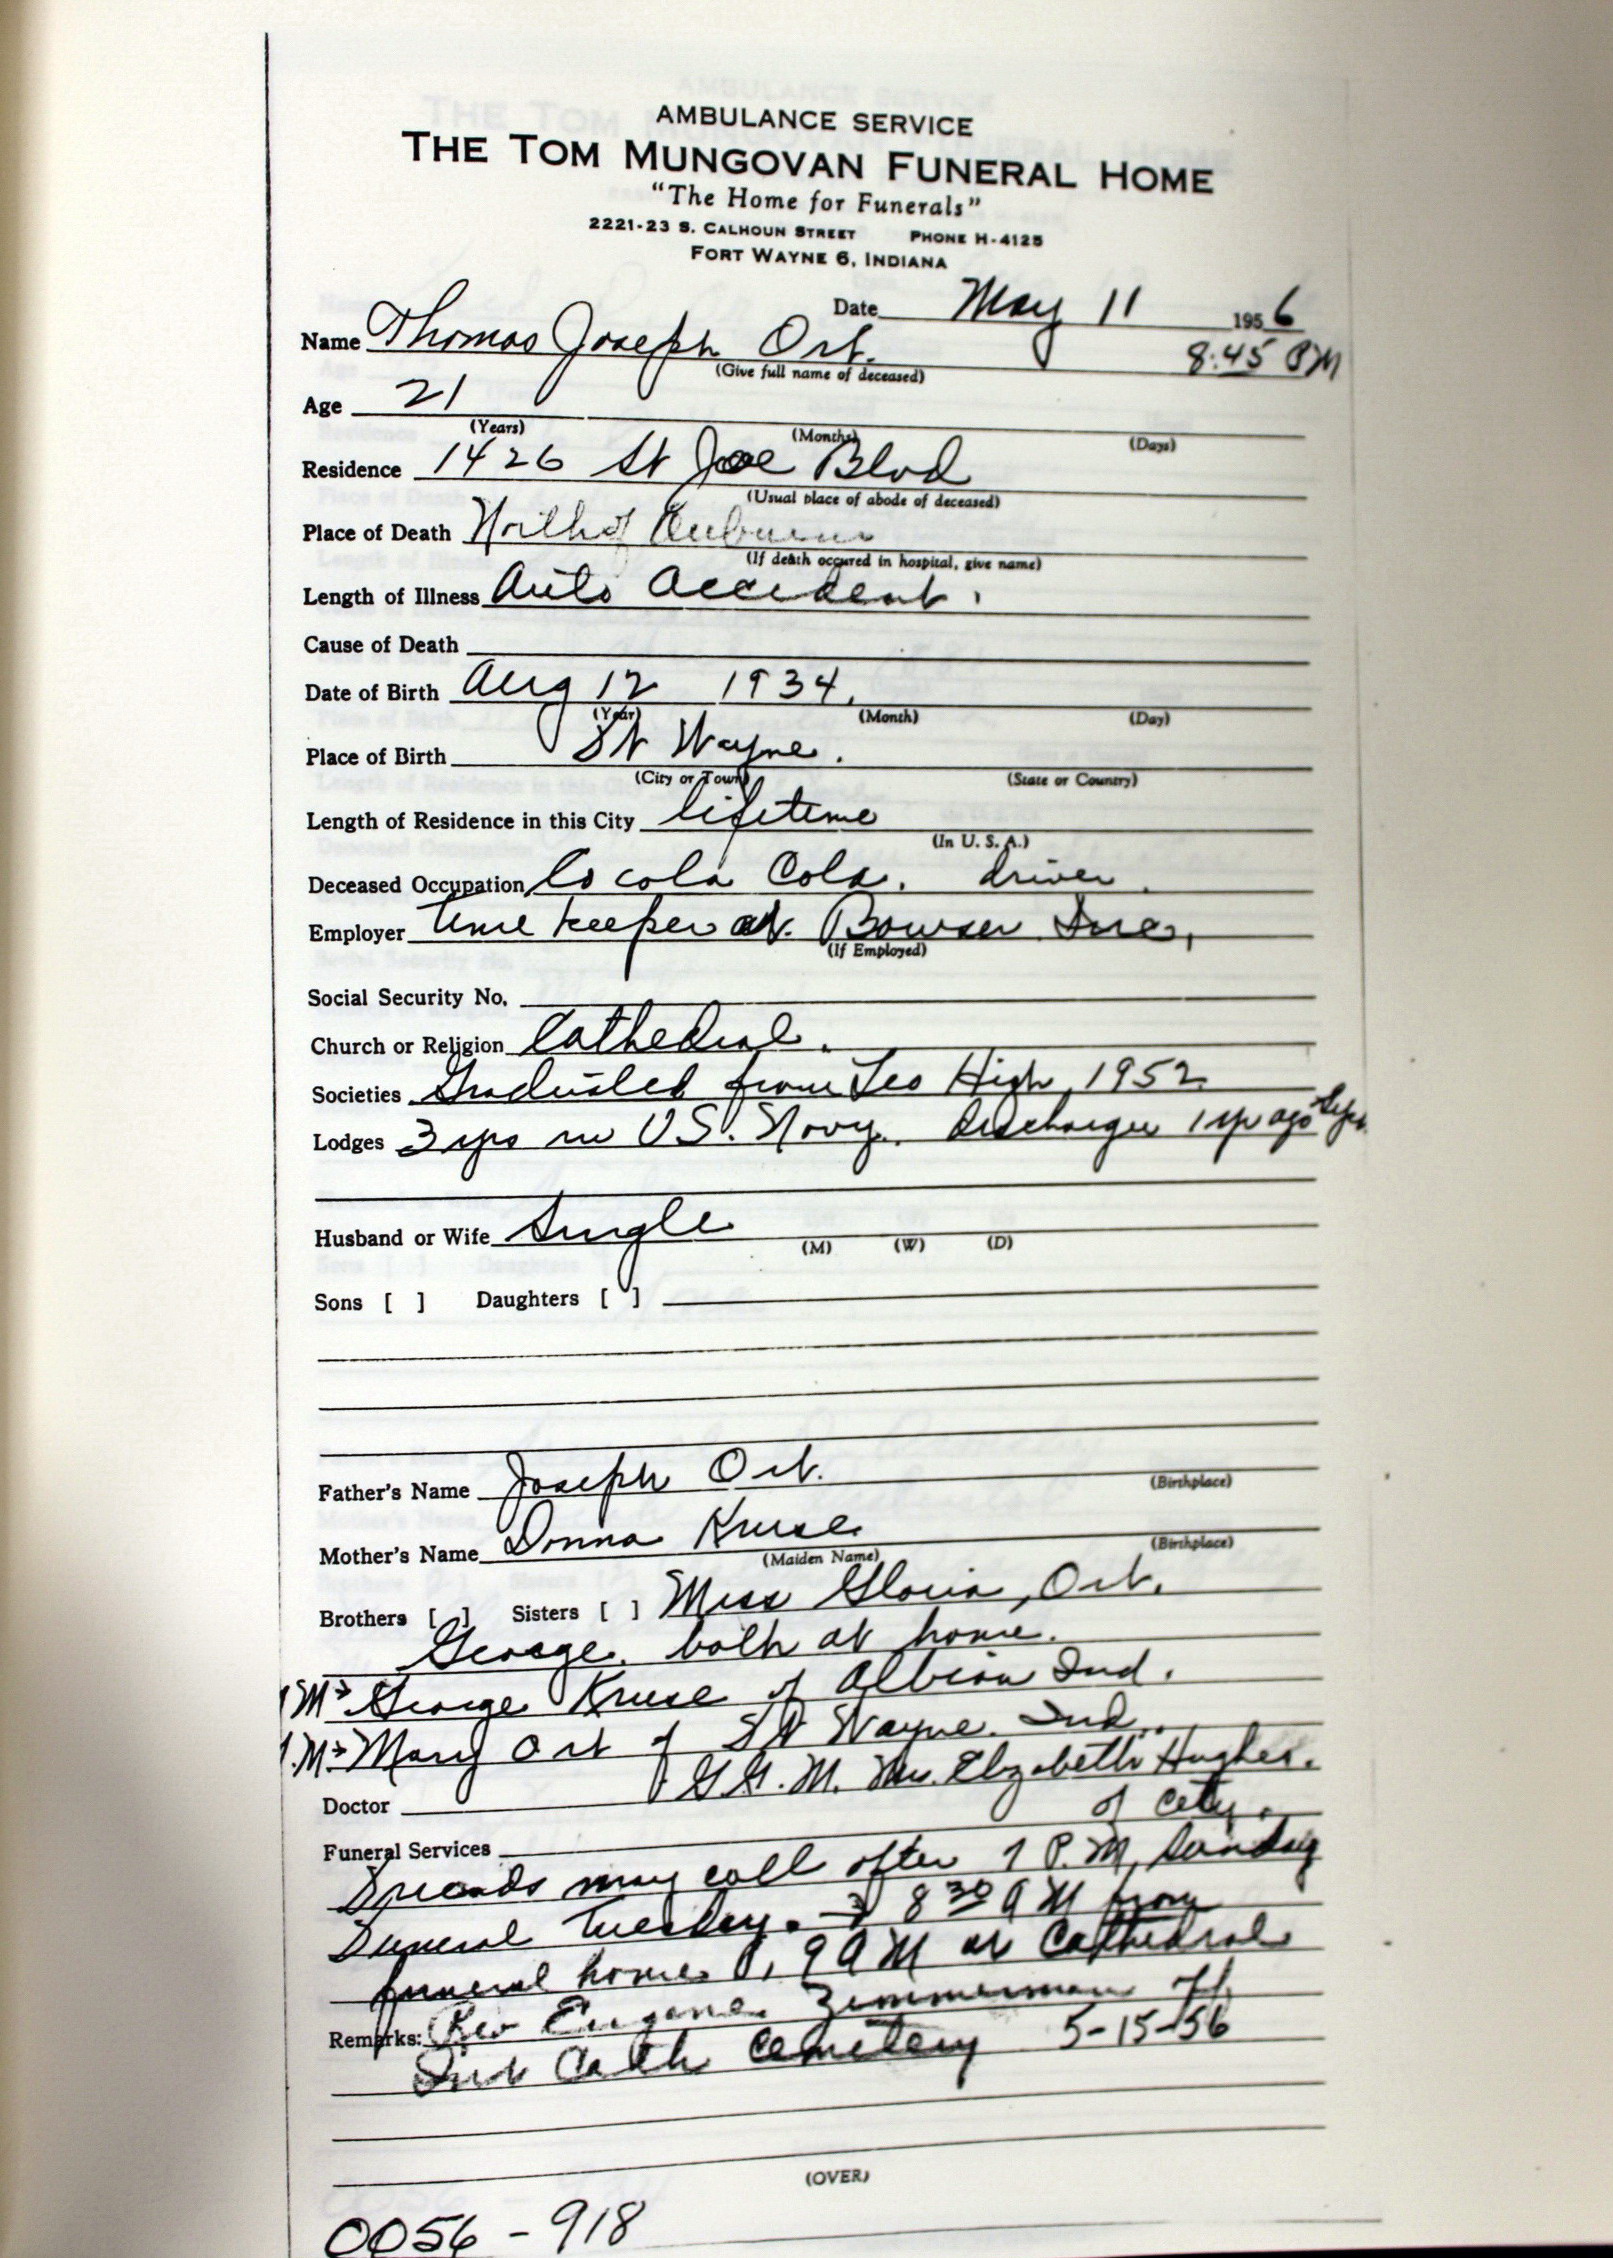 AMBULANCE SERVICE
THE TOM MUNGOVAN FUNERAL HOME
"The Home for Funerals"
2221-23 S. CALHOUN STREET PHONE H-4125
FORT WAYNE 6, INDIANA
Date May 11 1956
Name Thomas Joseph Ort. 8:45 PM
(Give full name of deceased)
Age 21
(Years) (Months) (Days)
Residence 1426 St Joe Blvd
(Usual place of abode of deceased)
Place of Death North of Auburn
(If death occured in hospital, give name)
Length of Illness Auto Accident.
Cause of Death
Date of Birth Aug 12 1934.
(Year) (Month) (Day)
Place of Birth Ft Wayne.
(City or Town) (State or Country)
Length of Residence in this City lifetime
(In U. S. A.)
Deceased Occupation Co cola Cola. driver.
Employer time keeper at. Bowser Inc,
(If Employed)
Social Security No.
Church or Religion Cathedral.
Societies Graduated from Leo High, 1952
Lodges 3 yrs in US. Navy. discharged 1 yr ago Sept.
Husband or Wife Single
(M) (W) (D)
Sons [ ] Daughters [ ]
Father's Name Joseph Ort.
(Birthplace)
Mother's Name Donna Kruse
(Maiden Name) (Birthplace)
Brothers [ ] Sisters [ ] Miss Gloria, Ort.
George. both at home.
Mrs George Kruse of Albion Ind.
Mrs Mary Ort of Ft Wayne. Ind.
G.G.M. Mrs. Elizabeth Hughes.
Doctor of City.
Funeral Services
Friends may call after 7 P.M, Sunday
Funeral Tuesday. 8 30 AM from
funeral home, 9 AM at Cathedral
Remarks: Rev Eugene Zimmerman off
Int Cath Cemetery 5-15-56
(OVER)
0056 - 918